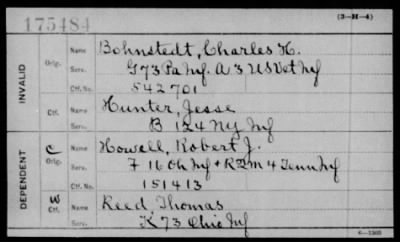 175484
(3—H—4)
INVALID
Orig.
Name Bohnstedt, Charles H.
Serv. G 73 Pa Inf. A 3 US Vet Inf
Ctf. No. 542701
Ctf.
Name Hunter, Jesse
Serv. B 124 NY Inf
DEPENDENT
C
Orig.
Name Howell, Robert J.
Serv. F 16 Oh Inf + R2M 4 Tenn Inf
Ctf. No. 151413
W
Ctf.
Name Reed, Thomas
Serv. K 73 Ohio Inf